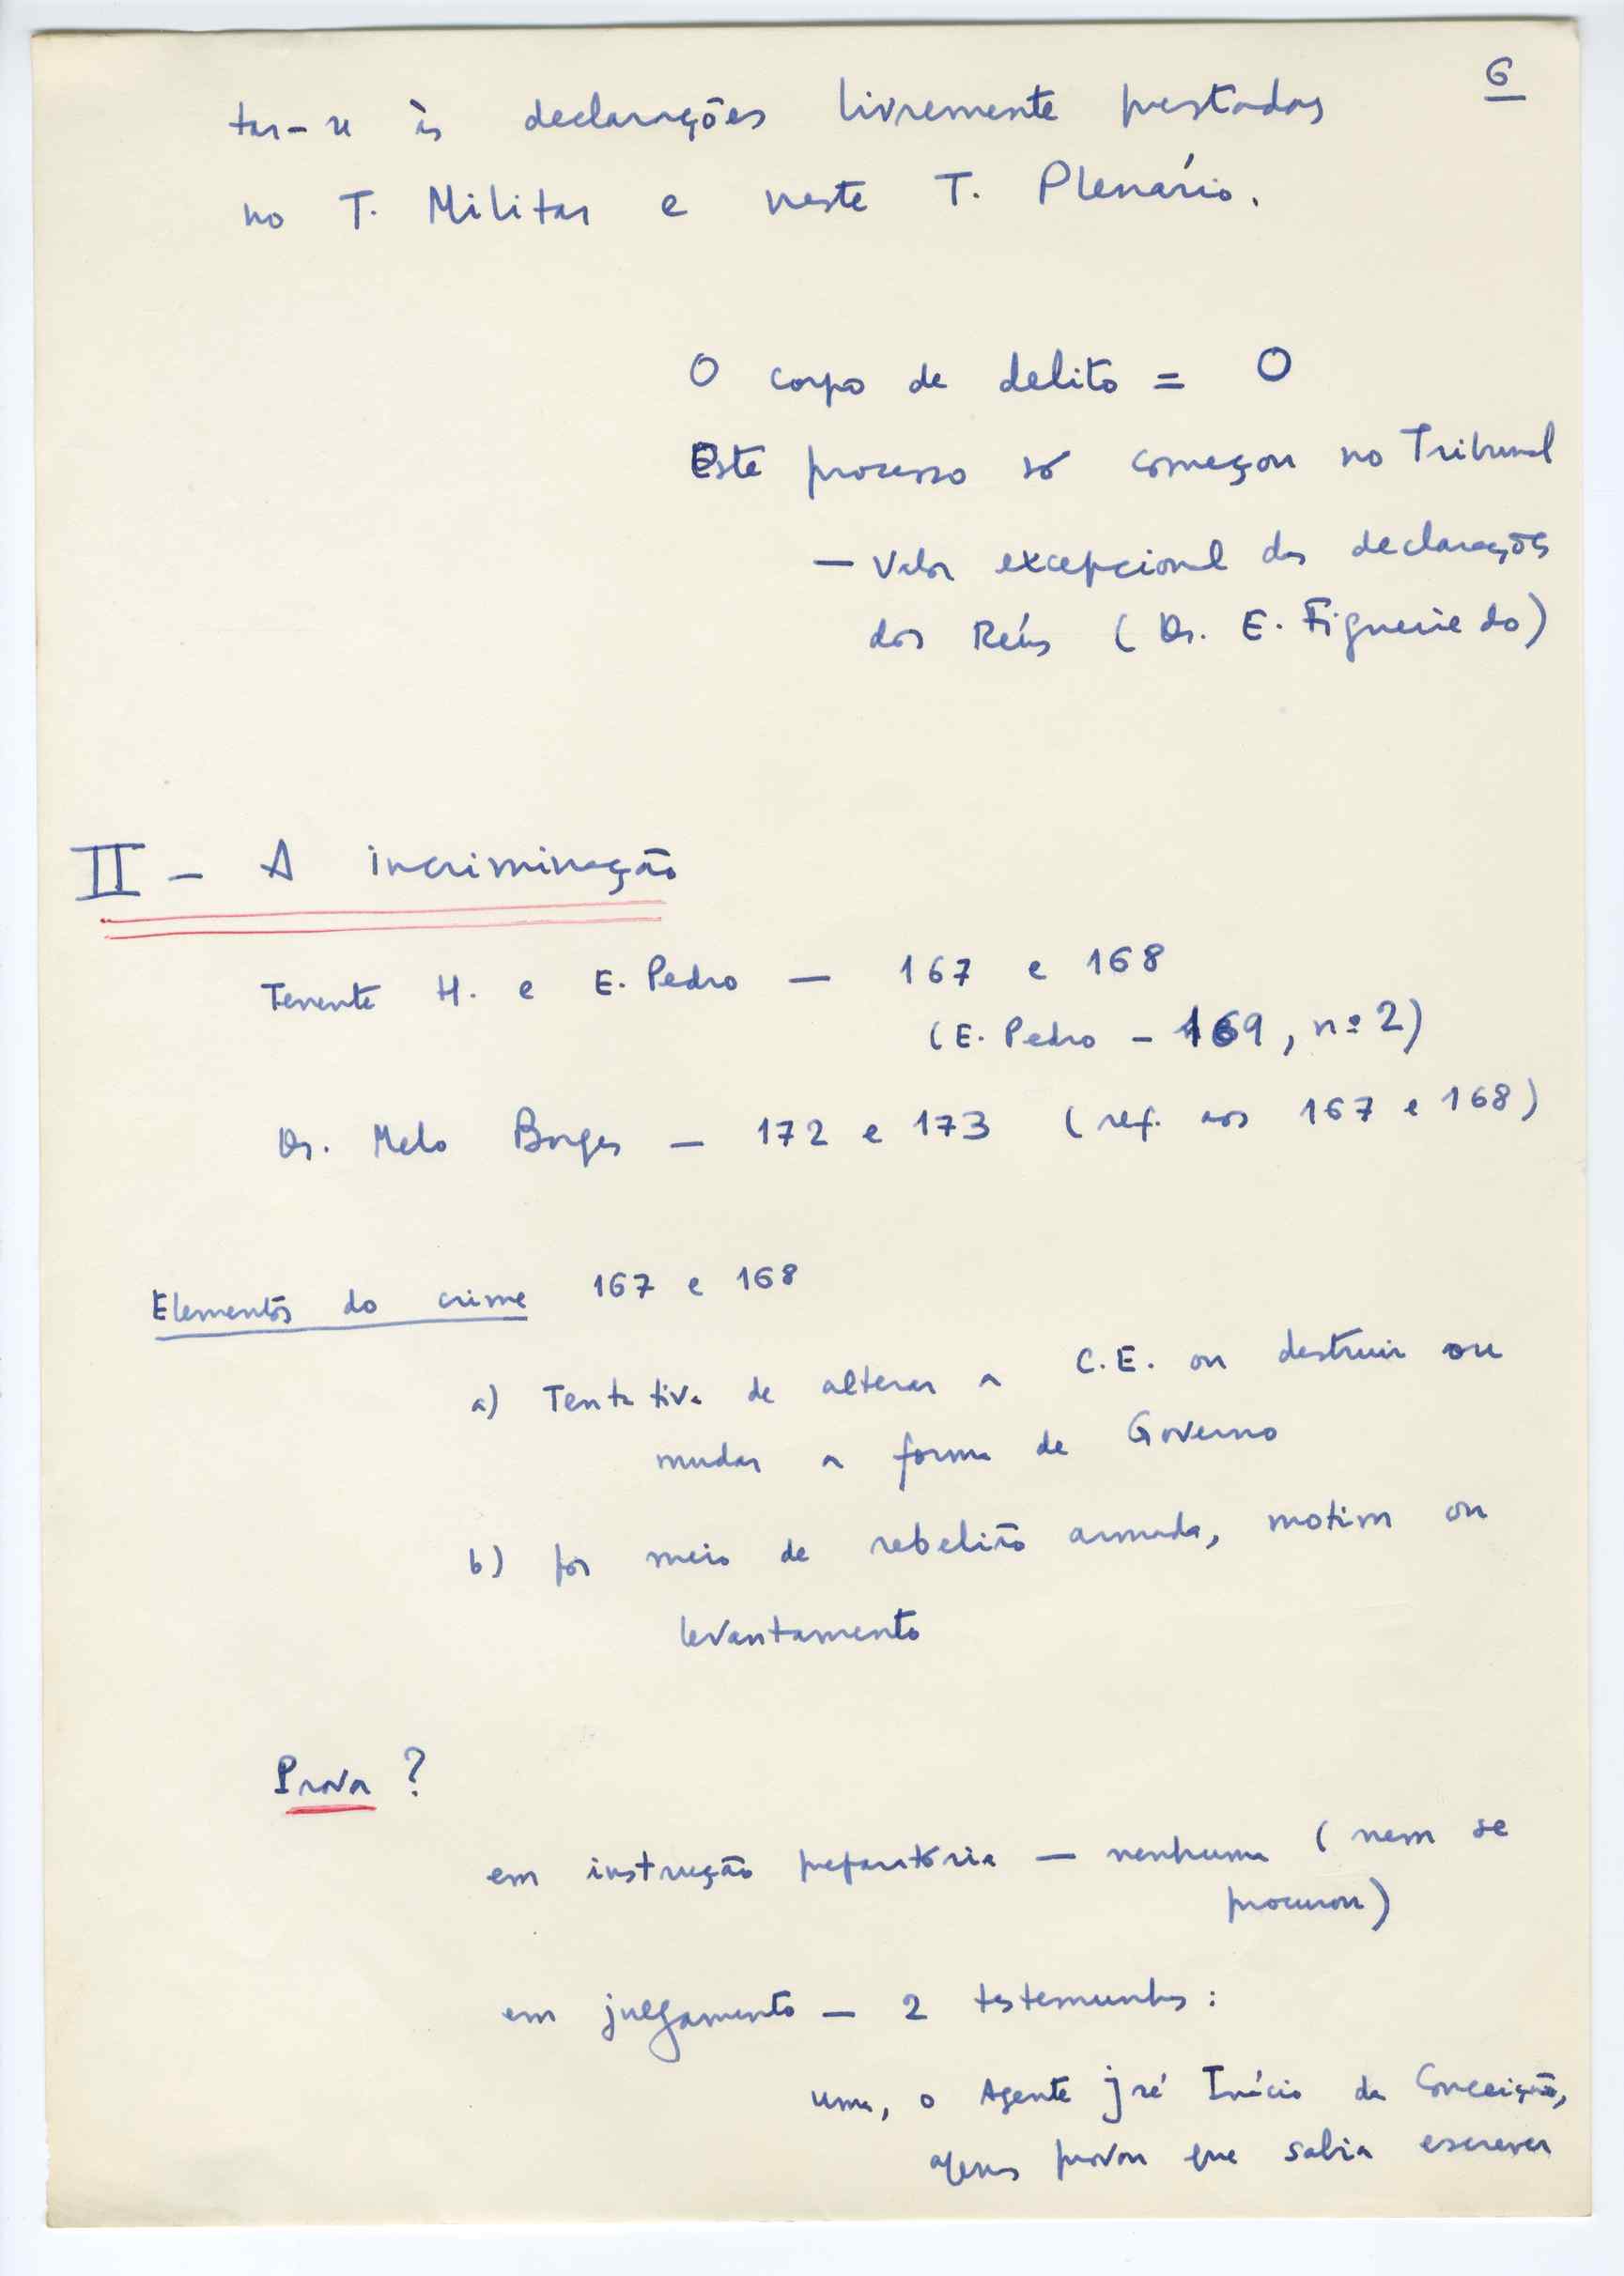 6
tar-se às declarações livremente prestadas
no T. Militar e neste T. Plenário.
O corpo de delito = 0
Este processo só começou no Tribunal
— Valor excepcional das declarações
dos Réus (Dr. E. Figueiredo)
II — A incriminação
Tenente H. e E. Pedro — 167 e 168
(E. Pedro - 169, nº 2)
Dr. Melo Borges — 172 e 173 (ref. aos 167 e 168)
Elementos do crime 167 e 168
a) Tentativa de alterar a C.E. ou destruir ou
mudar a forma de Governo
b) por meio de rebelião armada, motim ou
levantamento
Prova ?
em instrução preparatória — nenhuma (nem se
procurou)
em julgamento — 2 testemunhas :
uma, o Agente José Inácio da Conceição,
apenas provou que sabia escrever